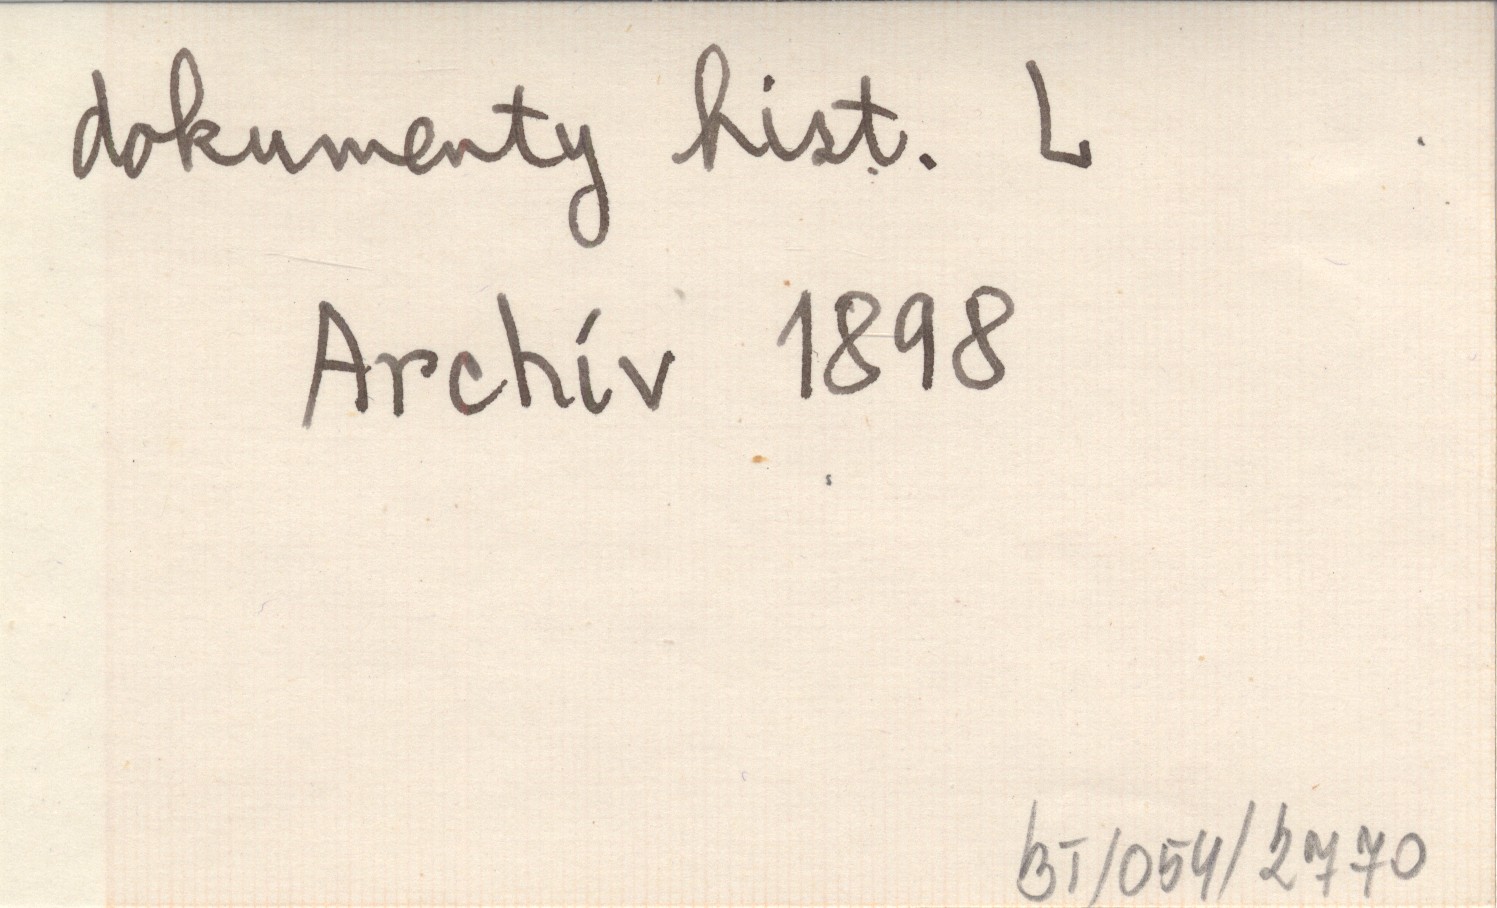 dokumenty hist. L
Archív 1898
BT/054/2770